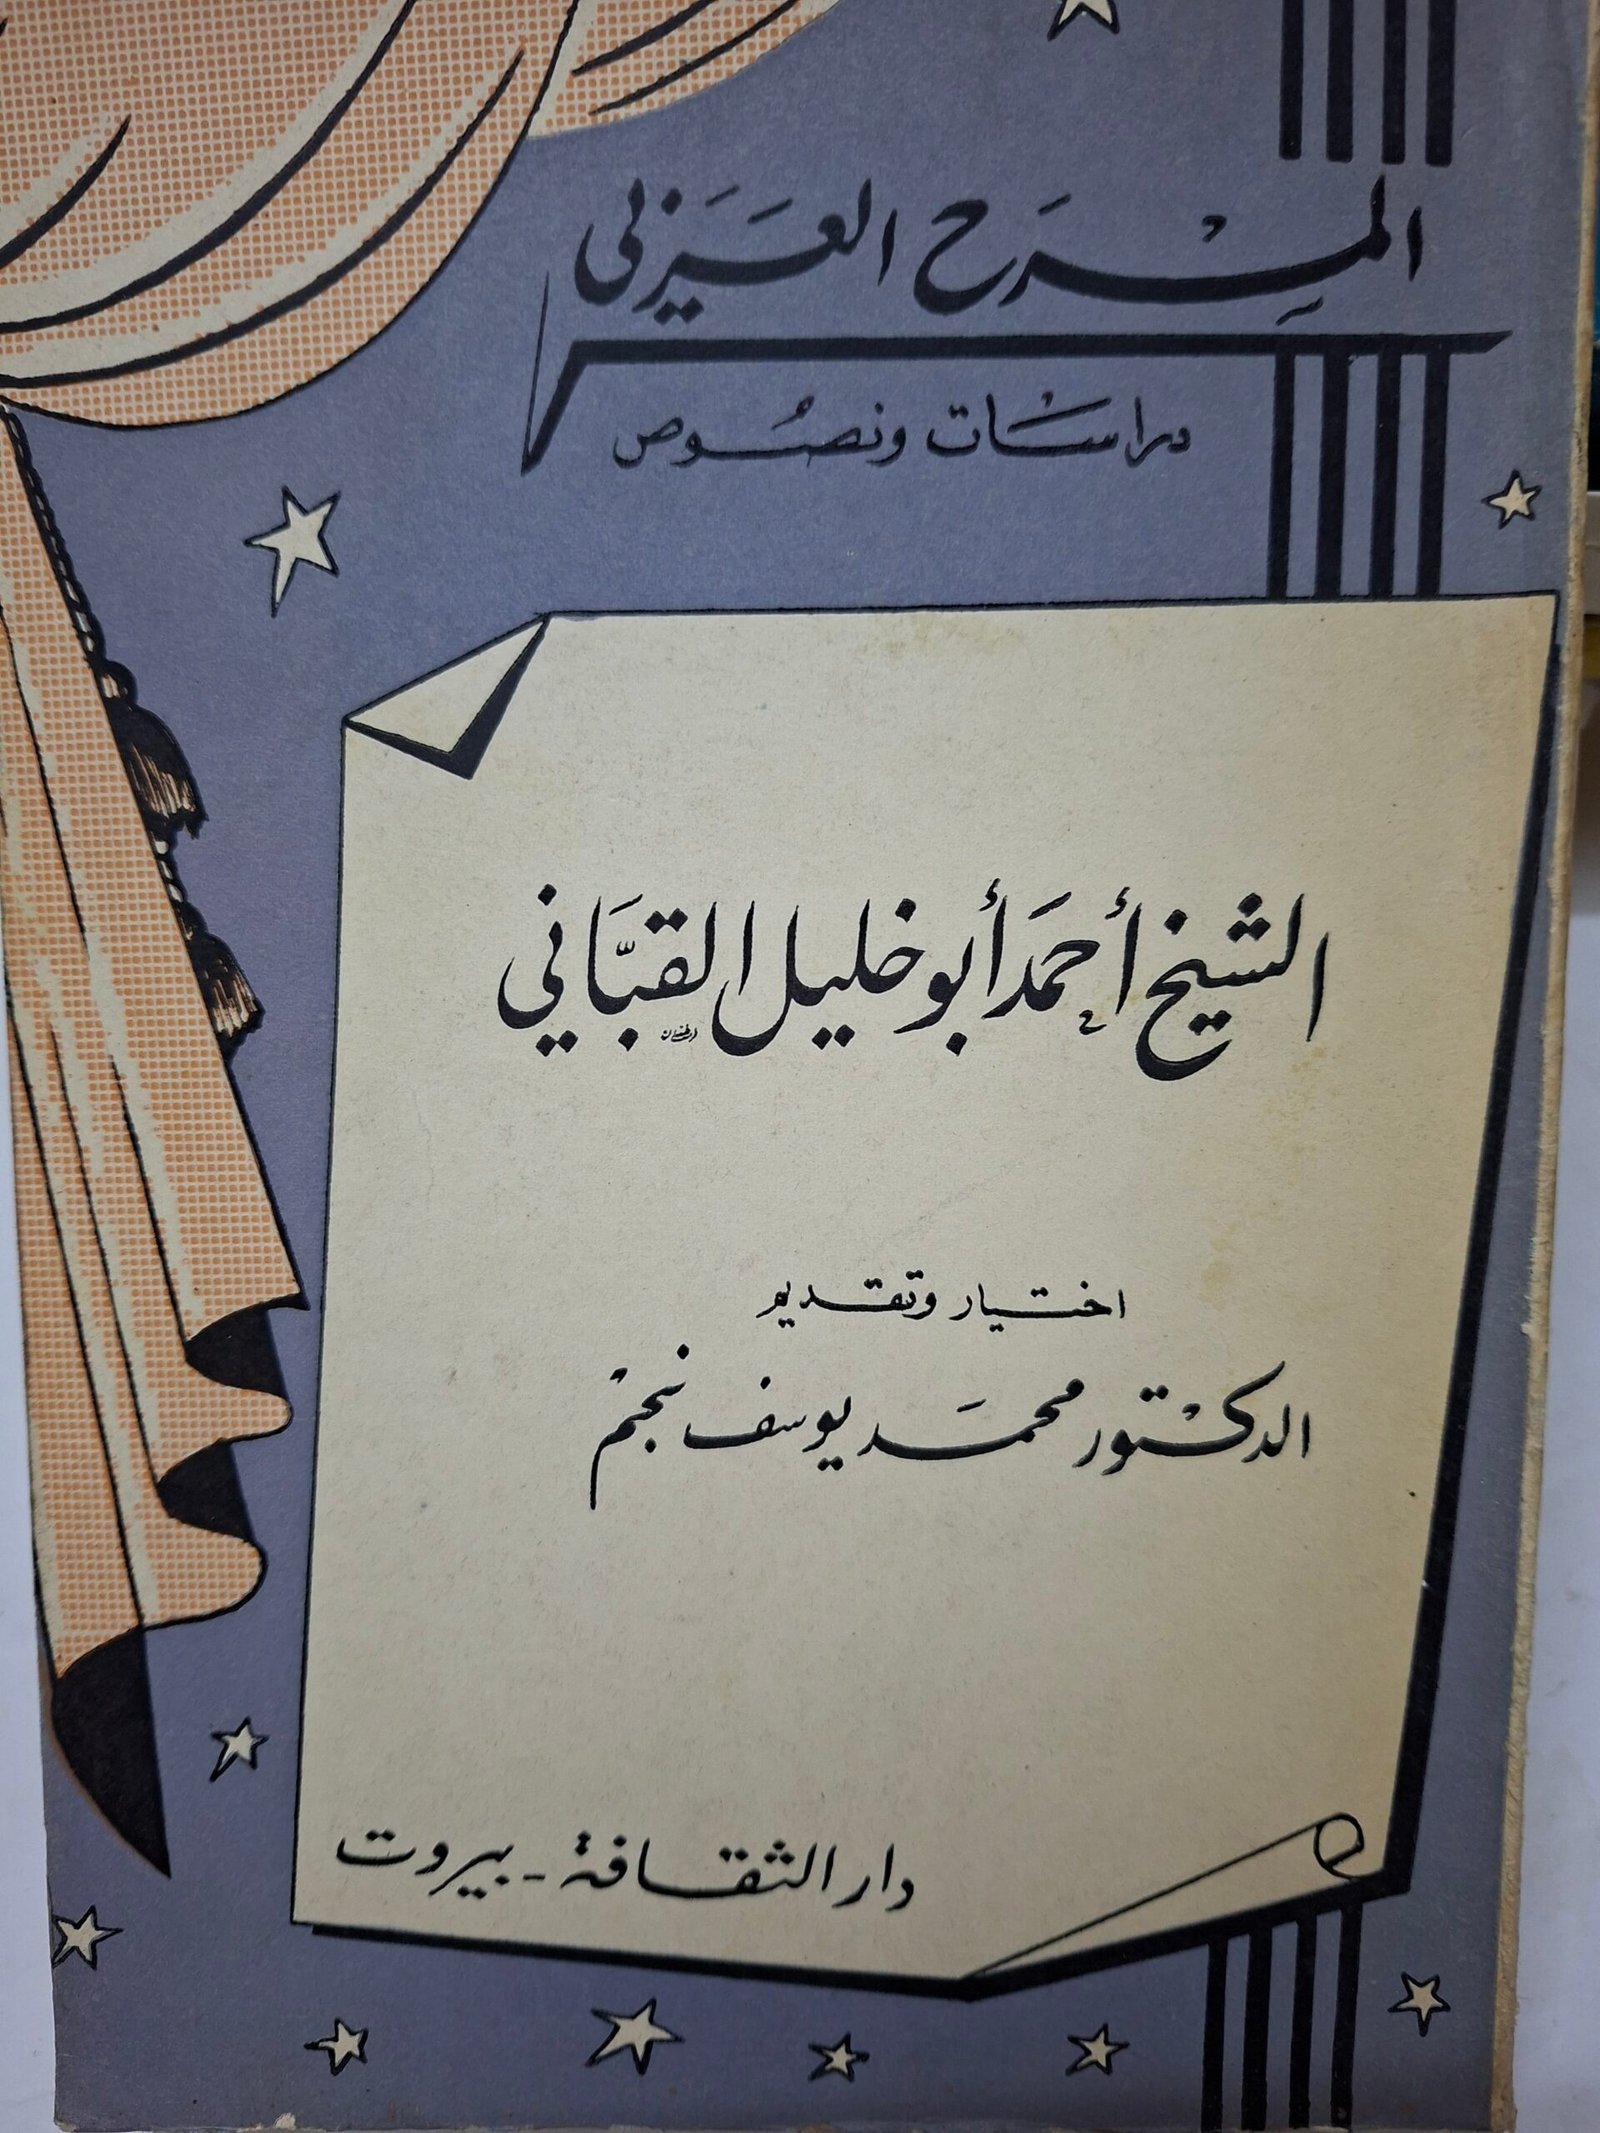 المسرح العربي
دراسات ونصوص
الشيخ أحمد أبو خليل القباني
اختيار وتقديم
الدكتور محمد يوسف نجم
دار الثقافة - بيروت